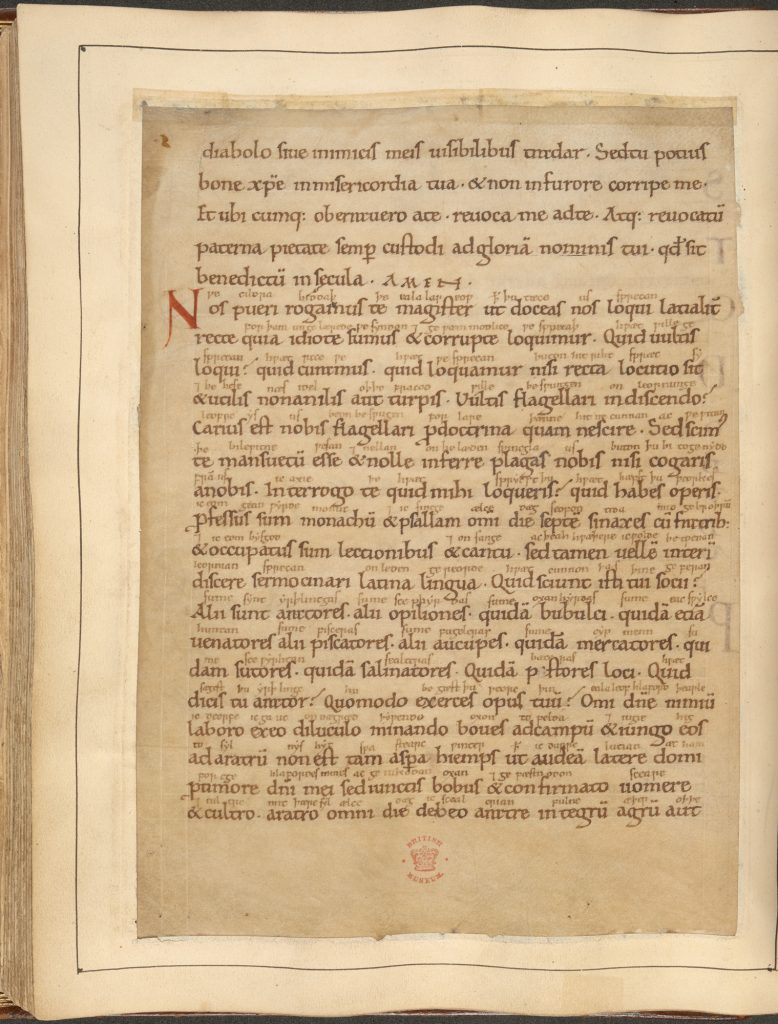 diabolo siue inimicis meis uisibilibus tradar · Sed tu potius
bone xp̄e in misericordia tua · & non in furore corripe me ·
Et ubi cumq: oberrauero a te · reuoca me ad te · Atq: reuocatū
paterna pietate semꝑ custodi ad gloriā nominis tui · qđ sit
benedictū in secula · AMEN ·
ƿe cildra biddaþ þe eala lareoƿ þ þu tæce us sprecan
Nos pueri rogamus te magister ut doceas nos loqui latialit̄
forþam ungelærede ƿe syndon ⁊ geƿæmmodlice ƿe sprecaþ hƿæt ƿille ge
recte quia idiote sumus & corrupte loquimur · Quid uultis
sprecan hƿæt rece ƿe hƿæt ƿe sprecan buton hit riht spræc sy
loqui? quid curamus · quid loquamur nisi recta locutio sit
⁊ behefe næs idel oþþe fracod ƿille beon besƿungen on leornunge
& utilis non anilis aut turpis · Uultis flagellari in discendo?
leofre ys us beon besƿungen for lare þænne hit ne cunnan ac ƿe ƿitan
Carius est nobis flagellari ꝑ doctrina quam nescire · Sed scim᷒
þe bileƿitne ƿesan ⁊ nellan onbelæden sƿincgla us buton þu bi togenydd
te mansuetū esse & nolle inferre plagas nobis nisi cogaris
fram us ic axie þe hƿæt sprycst þu hƿæt hæfst þu ƿeorkes
a nobis · Interrogo te quid mihi loqueris? quid habes operis ·
ic eom ⁊ ic singe ælce dæg seofon tida mid gebroþrum
Ꝓfessus sum monachū & psallam omī die septē sinaxes cū fratrib:
⁊ ic eom bysgod ⁊ on sange ac þeah hƿæþere ic ƿolde betƿenan
& occupatus sum lectionibus & cantu · sed tamen uellē interī
leornian sprecan on leden gereorde hƿæt cunnon þas þine geferan
discere sermocinari latina lingua · Quid sciunt isti tui socii?
sume synt yrþlincgas sume scephyrdas sume oxanhyrdas sume eac sƿylce
Alii sunt aratores · alii opiliones · quidā bubulci · quidā etiā
huntan sume fisceras sume fugeleras sume cypmenn
uenatores alii piscatores · alii aucupes · quidā mercatores · qui
sceoƿyrhtan sealteras bæceras
dam sutores · quidā salinatores · Quidā pistores loci · Quid
sægest þu yrþlingc hu begæst þu ƿeorc þin eala leof hlaford þearle
dicis tu arator? Quomodo exerces opus tuū? O mi dñe nimiū
ic deorfe ic ga ut on dægræd þyƿende oxon to felda ⁊ iugie hig
laboro exeo diluculo minando boues ad campū & iungo eos
to syl nys hyt sƿa stearc ƿinter þ ic durre lutian æt ham
ad aratrū non est tam asꝑa hiemps ut audeā latere domi
for ege hlafordes mines ac geiukodan oxan ⁊ gefæstnodon sceare
ꝑ timore dñi mei sed iunctis bobus & confirmato uomere
⁊ cultre mit þære syl ælce dæg ic sceal erian fulne æcer oþþe
& cultro · aratro omni die debeo arare integrū agrū aut
BRITISH MUSEUM